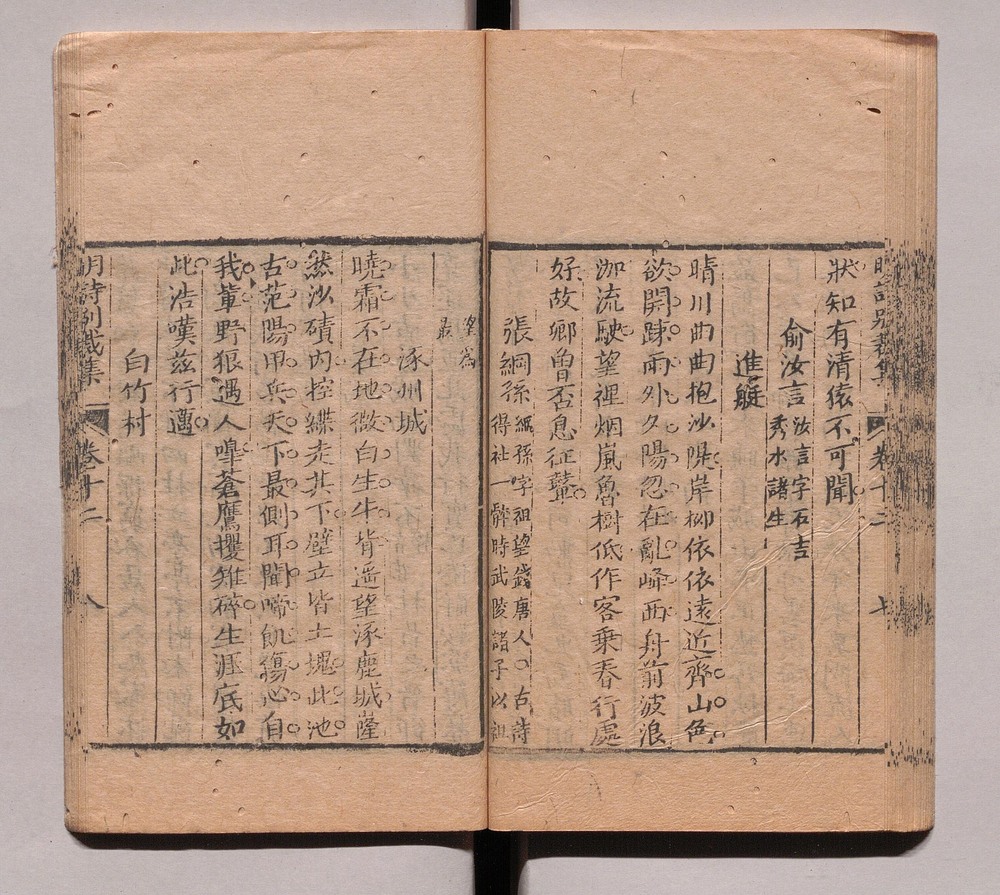 狀知有清猿不可聞
俞汝言汝言字石吉
秀水諸生
進艇
晴川曲曲抱沙隄岸柳依依遠近齊山色
欲開踈雨外夕陽忽在亂峰西舟前波浪
洳流駛望裡烟嵐魯樹低作客乗春行處
好故鄉曽否息征鼙
張綱孫綱孫字祖望錢唐人○古詩
得杜一髀時武陵諸子以祖
望為
最
涿州城
曉霜不在地微白生牛背遥望涿鹿城嶐
然沙磧内控緤走其下壁立皆土塊此池
古范陽甲兵天下最側耳聞啼飢傷心自
我輩野狼遇人嘷蒼鷹攫雉碎生涯底如
此浩嘆兹行邁
白竹村
明詩别裁集
卷十二
八